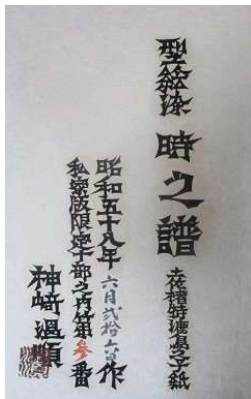 型絵染 時之譜 土佐楮特漉鳥之子紙
昭和五十八年 六月弐拾六日作
私家版限定十部之内第参番
神崎温順